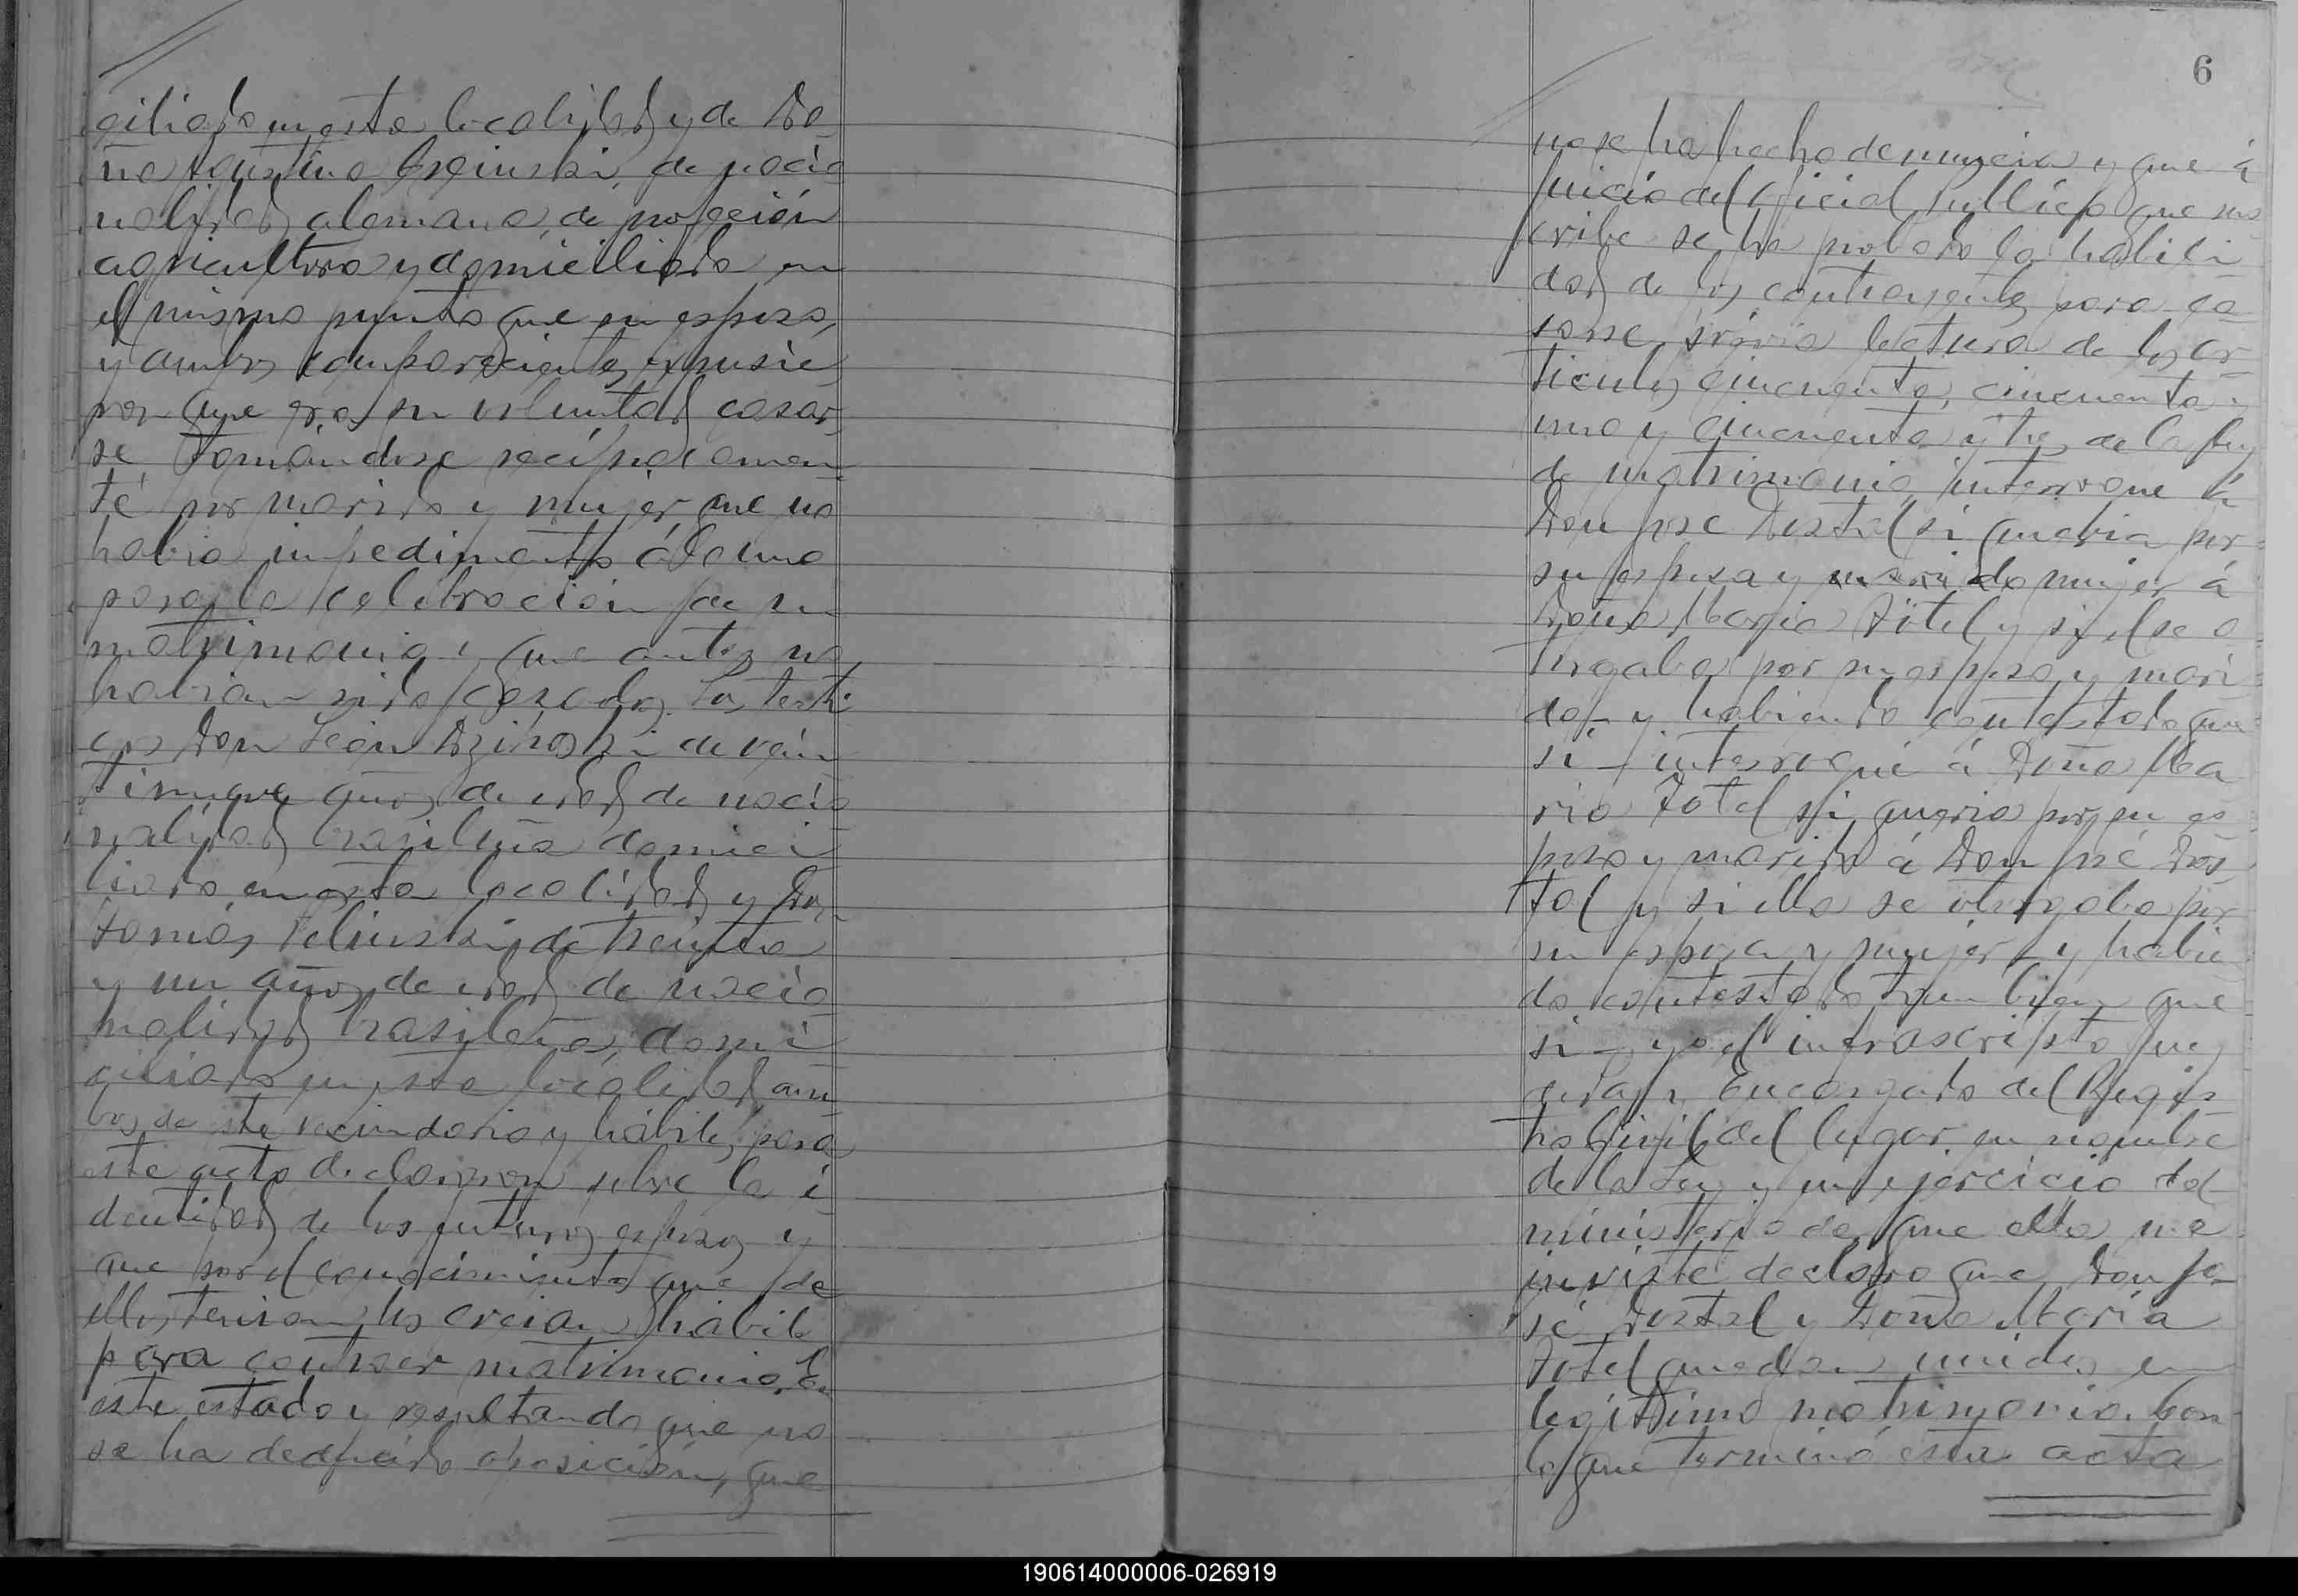 ciliado en esta localidad y de Do
ña Agustina de nacio
nalidad alemana, de profeción
agricultora y domicilliada en
el mismo punto que su esposo,
y ambos comparecientes expusie
ron que era su voluntad casar
se tomándose recíprocamen
te por marido y mujer, que no
habia impedimento álguno
para la celebración de su
matrimonio y que antes no
habian sido casados. Los testi
gos Don León de vein
tinueve años de edad de nacio
nalidad brasileña domici
liado en esta localidad y Don
Tomás de treinta
y un años de edad de nacio
nalidad brasileña, domi
ciliado en esta localidad am
bos de este vecindario y hábiles para
este acto declararon sobre la i
dentidad de los futuros esposos y
que por el conocimiento que de
ellos tenian los creian hábiles
para contraer matrimonio. En
este estado y resultando que no
se ha deducido oposición, que
6
no se ha hecho denuncia y que á
juicio del oficial público que sus
cribe se ha probado la habili
dad de los contrayentes para ca
sarse, lectura de los ar
ticulos cincuenta, cincuenta y
uno y cincuenta y tres de la ley
de matrimonio interrogué á
Don José Dostal si queria por
su esposa y mujer á
Doña Maria Fötel y si el se o
torgaba por su esposo y mari
do – y habiendo contestado que
si – interrogué á Doña Ma
ria Fotel si queria por su es
poso y marido á Don José Dos
tal y si ella se otorgaba por
su esposa y mujer – y habien
do contestado tambien que
si – yo el infrascripto Juez
de Paz Encargado del Regis
tro Civil del lugar en nombre
de la Ley y en ejercicio del
ministerio de que ella me
inviste declaro que Don Jo
sé Dostal y Doña Maria
Fotel quedan unidos en
legitimo matrimonio. Con
lo que terminó esta acta
190614000006-026919